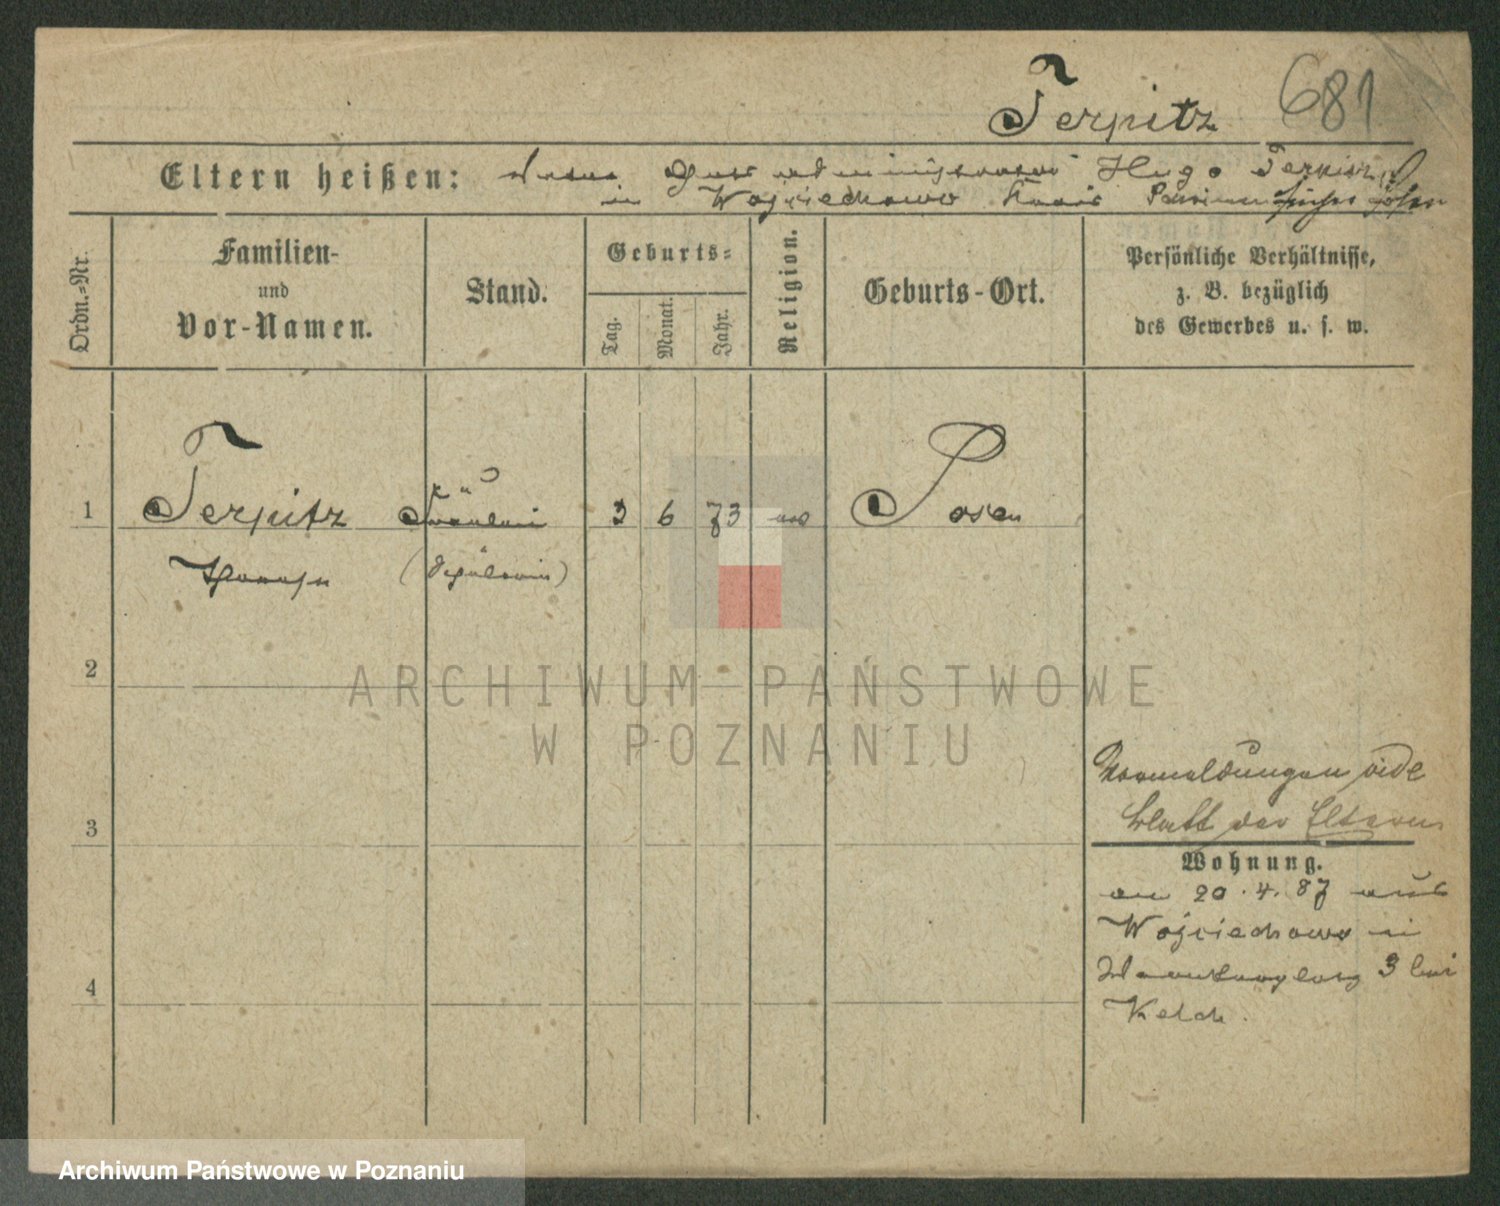 Terpitz 681
Eltern heißen: Hugo Terpitz
in Wojciechowo
Ordn.-Nr.
Familien-
und
Vor-Namen.
Stand.
Geburts-
Tag.
Monat.
Jahr.
Religion.
Geburts-Ort.
Persönliche Verhältnisse,
z. B. bezüglich
des Gewerbes u. s. w.
1 Terpitz Fräulein 3 6 73 Posen
(Schülerin)
2
ARCHIWUM PAŃSTWOWE
W POZNANIU
Anmeldungen vide
3 Blatt der Eltern
Wohnung.
am 20.4.87 aus
Wojciechowo in
3 bei
4
Kelch.
Archiwum Państwowe w Poznaniu